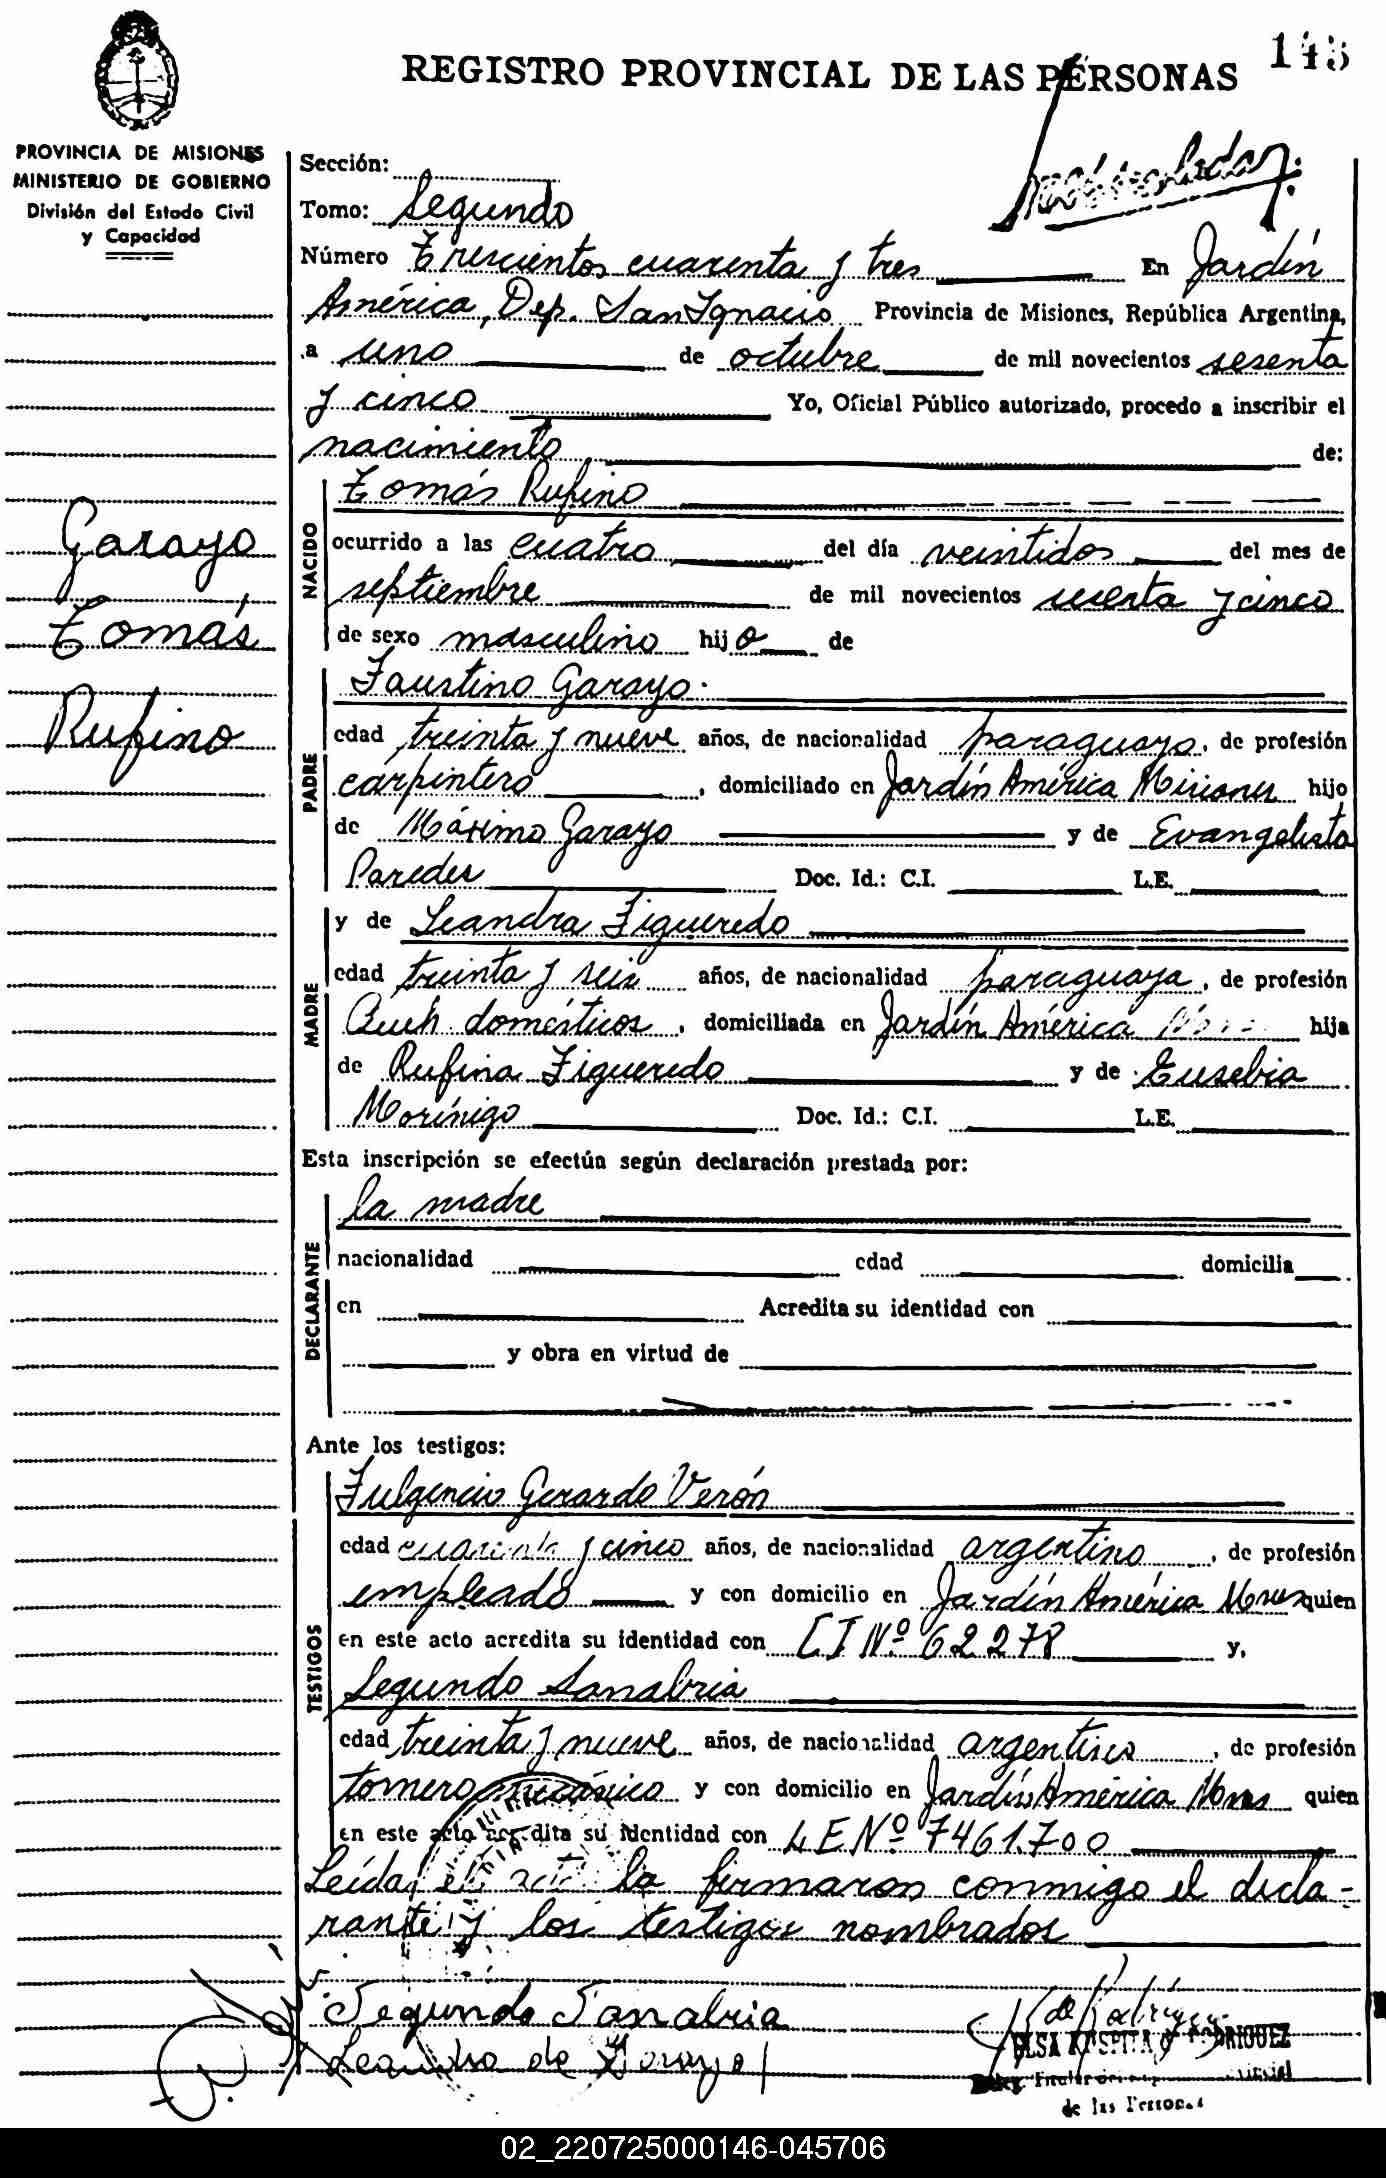 REGISTRO PROVINCIAL DE LAS PERSONAS
PROVINCIA DE MISIONES
MINISTERIO DE GOBIERNO
División del Estado Civil
y Capacidad
Garayo
Tomás
Rufino
Sección:
Tomo: Segundo
Número Trescientos cuarenta y tres En Jardín
América, Dep. San Ignacio Provincia de Misiones, República Argentina,
a uno de octubre de mil novecientos sesenta
y cinco Yo, Oficial Público autorizado, procedo a inscribir el
nacimiento de:
NACIDO
Tomás Rufino
ocurrido a las cuatro del día veintidos del mes de
septiembre de mil novecientos sesenta y cinco
de sexo masculino hijo de
PADRE
Faustino Garayo.
edad treinta y nueve años, de nacionalidad paraguayo, de profesión
carpintero, domiciliado en Jardín América Misiones hijo
de Máximo Garayo y de Evangelista
Paredes Doc. Id.: C.I. L.E.
MADRE
y de Leandra Figueredo
edad treinta y seis años, de nacionalidad paraguaya, de profesión
Queh. domésticos, domiciliada en Jardín América hija
de Rufina Figueredo y de Eusebia
Morínigo Doc. Id.: C.I. L.E.
Esta inscripción se efectúa según declaración prestada por:
DECLARANTE
la madre
nacionalidad edad domicilia
en Acredita su identidad con
y obra en virtud de
Ante los testigos:
TESTIGOS
Fulgencio Gerardo Verón
edad cuarenta y cinco años, de nacionalidad argentino, de profesión
empleado y con domicilio en Jardín América Mnes quien
en este acto acredita su identidad con CI Nº 62278 y,
Segundo Sanabria
edad treinta y nueve años, de nacionalidad argentino, de profesión
tornero mecánico y con domicilio en Jardín América Mnes quien
en este acto acredita su identidad con LE Nº 7461.700
Leída el acta la firmaron conmigo el decla-
rante y los testigos nombrados
Segundo Sanabria
Leandra de Garayo
ELSA RODRIGUEZ
Titular
de las Personas
02_220725000146-045706